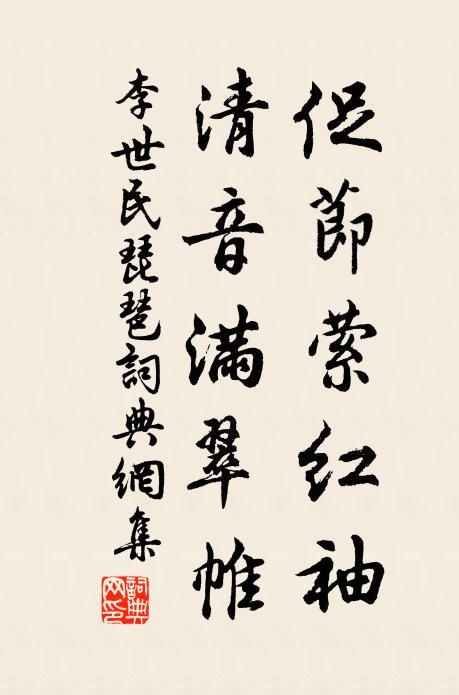 促節縈紅袖
清音滿翠帷
李世民琵琶詞典網集
詞典网印